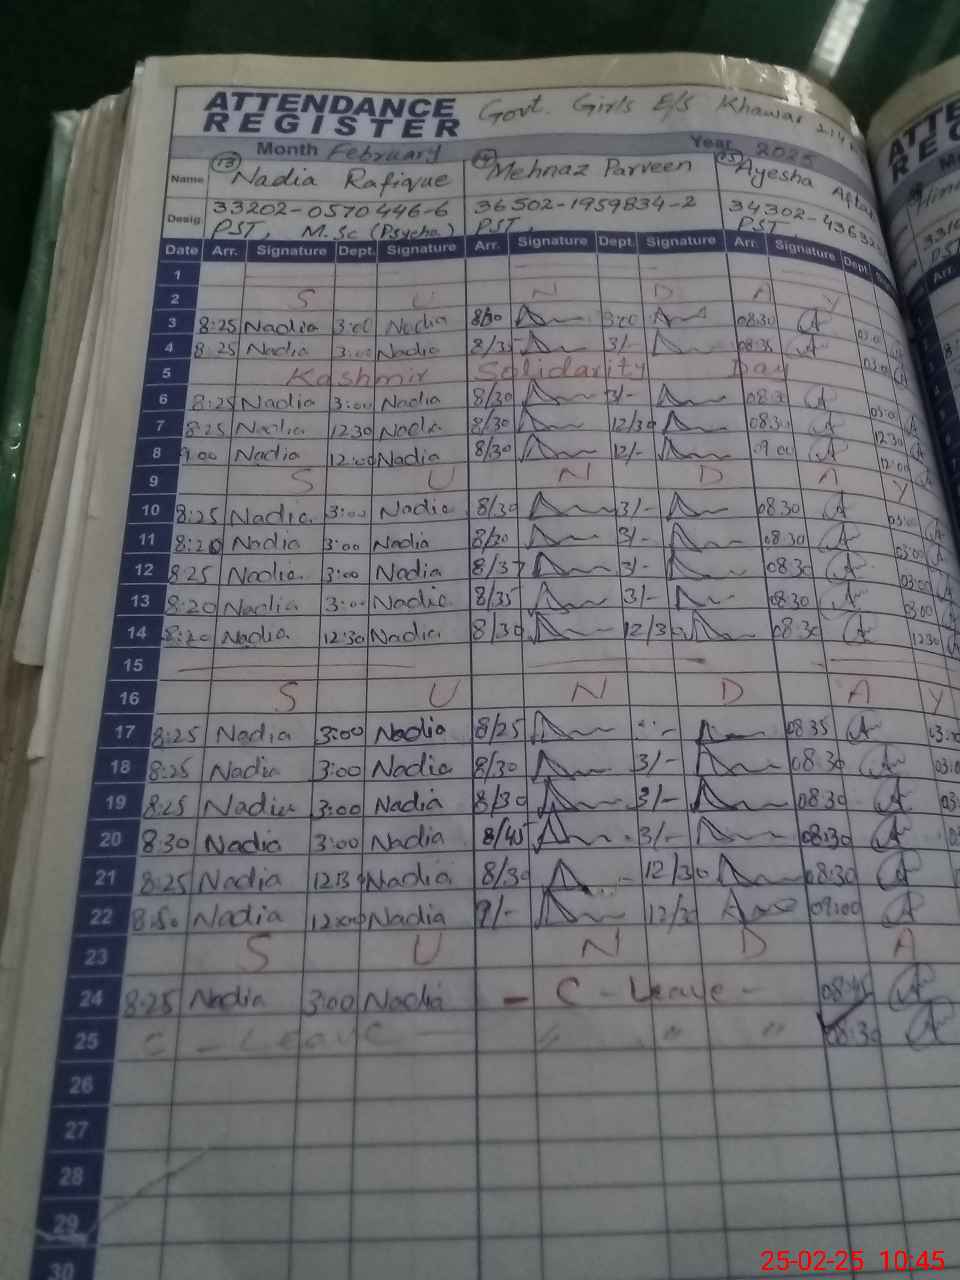 ATTENDANCE REGISTER Govt. Girls E/S Khawar
Month February Year 2025
Name (13) Nadia Rafique Mehnaz Parveen (15) Ayesha
Desig. 33202-0570446-6 36502-1959834-2 34302-
PST, M.Sc (Psycho) PST, PST
Date Arr. Signature Dept. Signature Arr. Signature Dept. Signature Arr. Signature Dept.
1
2 S U N D A Y
3 8:25 Nadia 3:00 Nadia 8/30 3:00 08:30 03:00
4 8:25 Nadia 3:00 Nadia 8/35 3/- 08:35 03:00
5 Kashmir Solidarity Day
6 8:25 Nadia 3:00 Nadia 8/30 3/- 08:30 03:0
7 8:25 Nadia 12:30 Nadia 8/30 12/30 08:30 12:30
8 9:00 Nadia 12:00 Nadia 8/30 12/- 09:00 12:00
9 S U N D A Y
10 8:25 Nadia 3:00 Nadia 8/30 3/- 08:30 03:00
11 8:20 Nadia 3:00 Nadia 8/30 3/- 08:30 03:00
12 8:25 Nadia 3:00 Nadia 8/37 3/- 08:30 03:00
13 8:20 Nadia 3:00 Nadia 8/35 3/- 08:30 03:00
14 8:20 Nadia 12:30 Nadia 8/30 12/30 08:30 12:30
15
16 S U N D A Y
17 8:25 Nadia 3:00 Nadia 8/25 08:35 03:0
18 8:25 Nadia 3:00 Nadia 8/30 3/- 08:30 03:0
19 8:25 Nadia 3:00 Nadia 8/30 3/- 08:30 03:
20 8:30 Nadia 3:00 Nadia 8/45 3/- 08:30 03
21 8:25 Nadia 12:30 Nadia 8/30 12/30 08:30
22 8:50 Nadia 12:00 Nadia 9/- 12/30 09:00
23 S U N D A
24 8:25 Nadia 3:00 Nadia - C - Leave - 08:45
25 C - Leave " " " 08:30
26
27
28
29
30
25-02-25 10:45